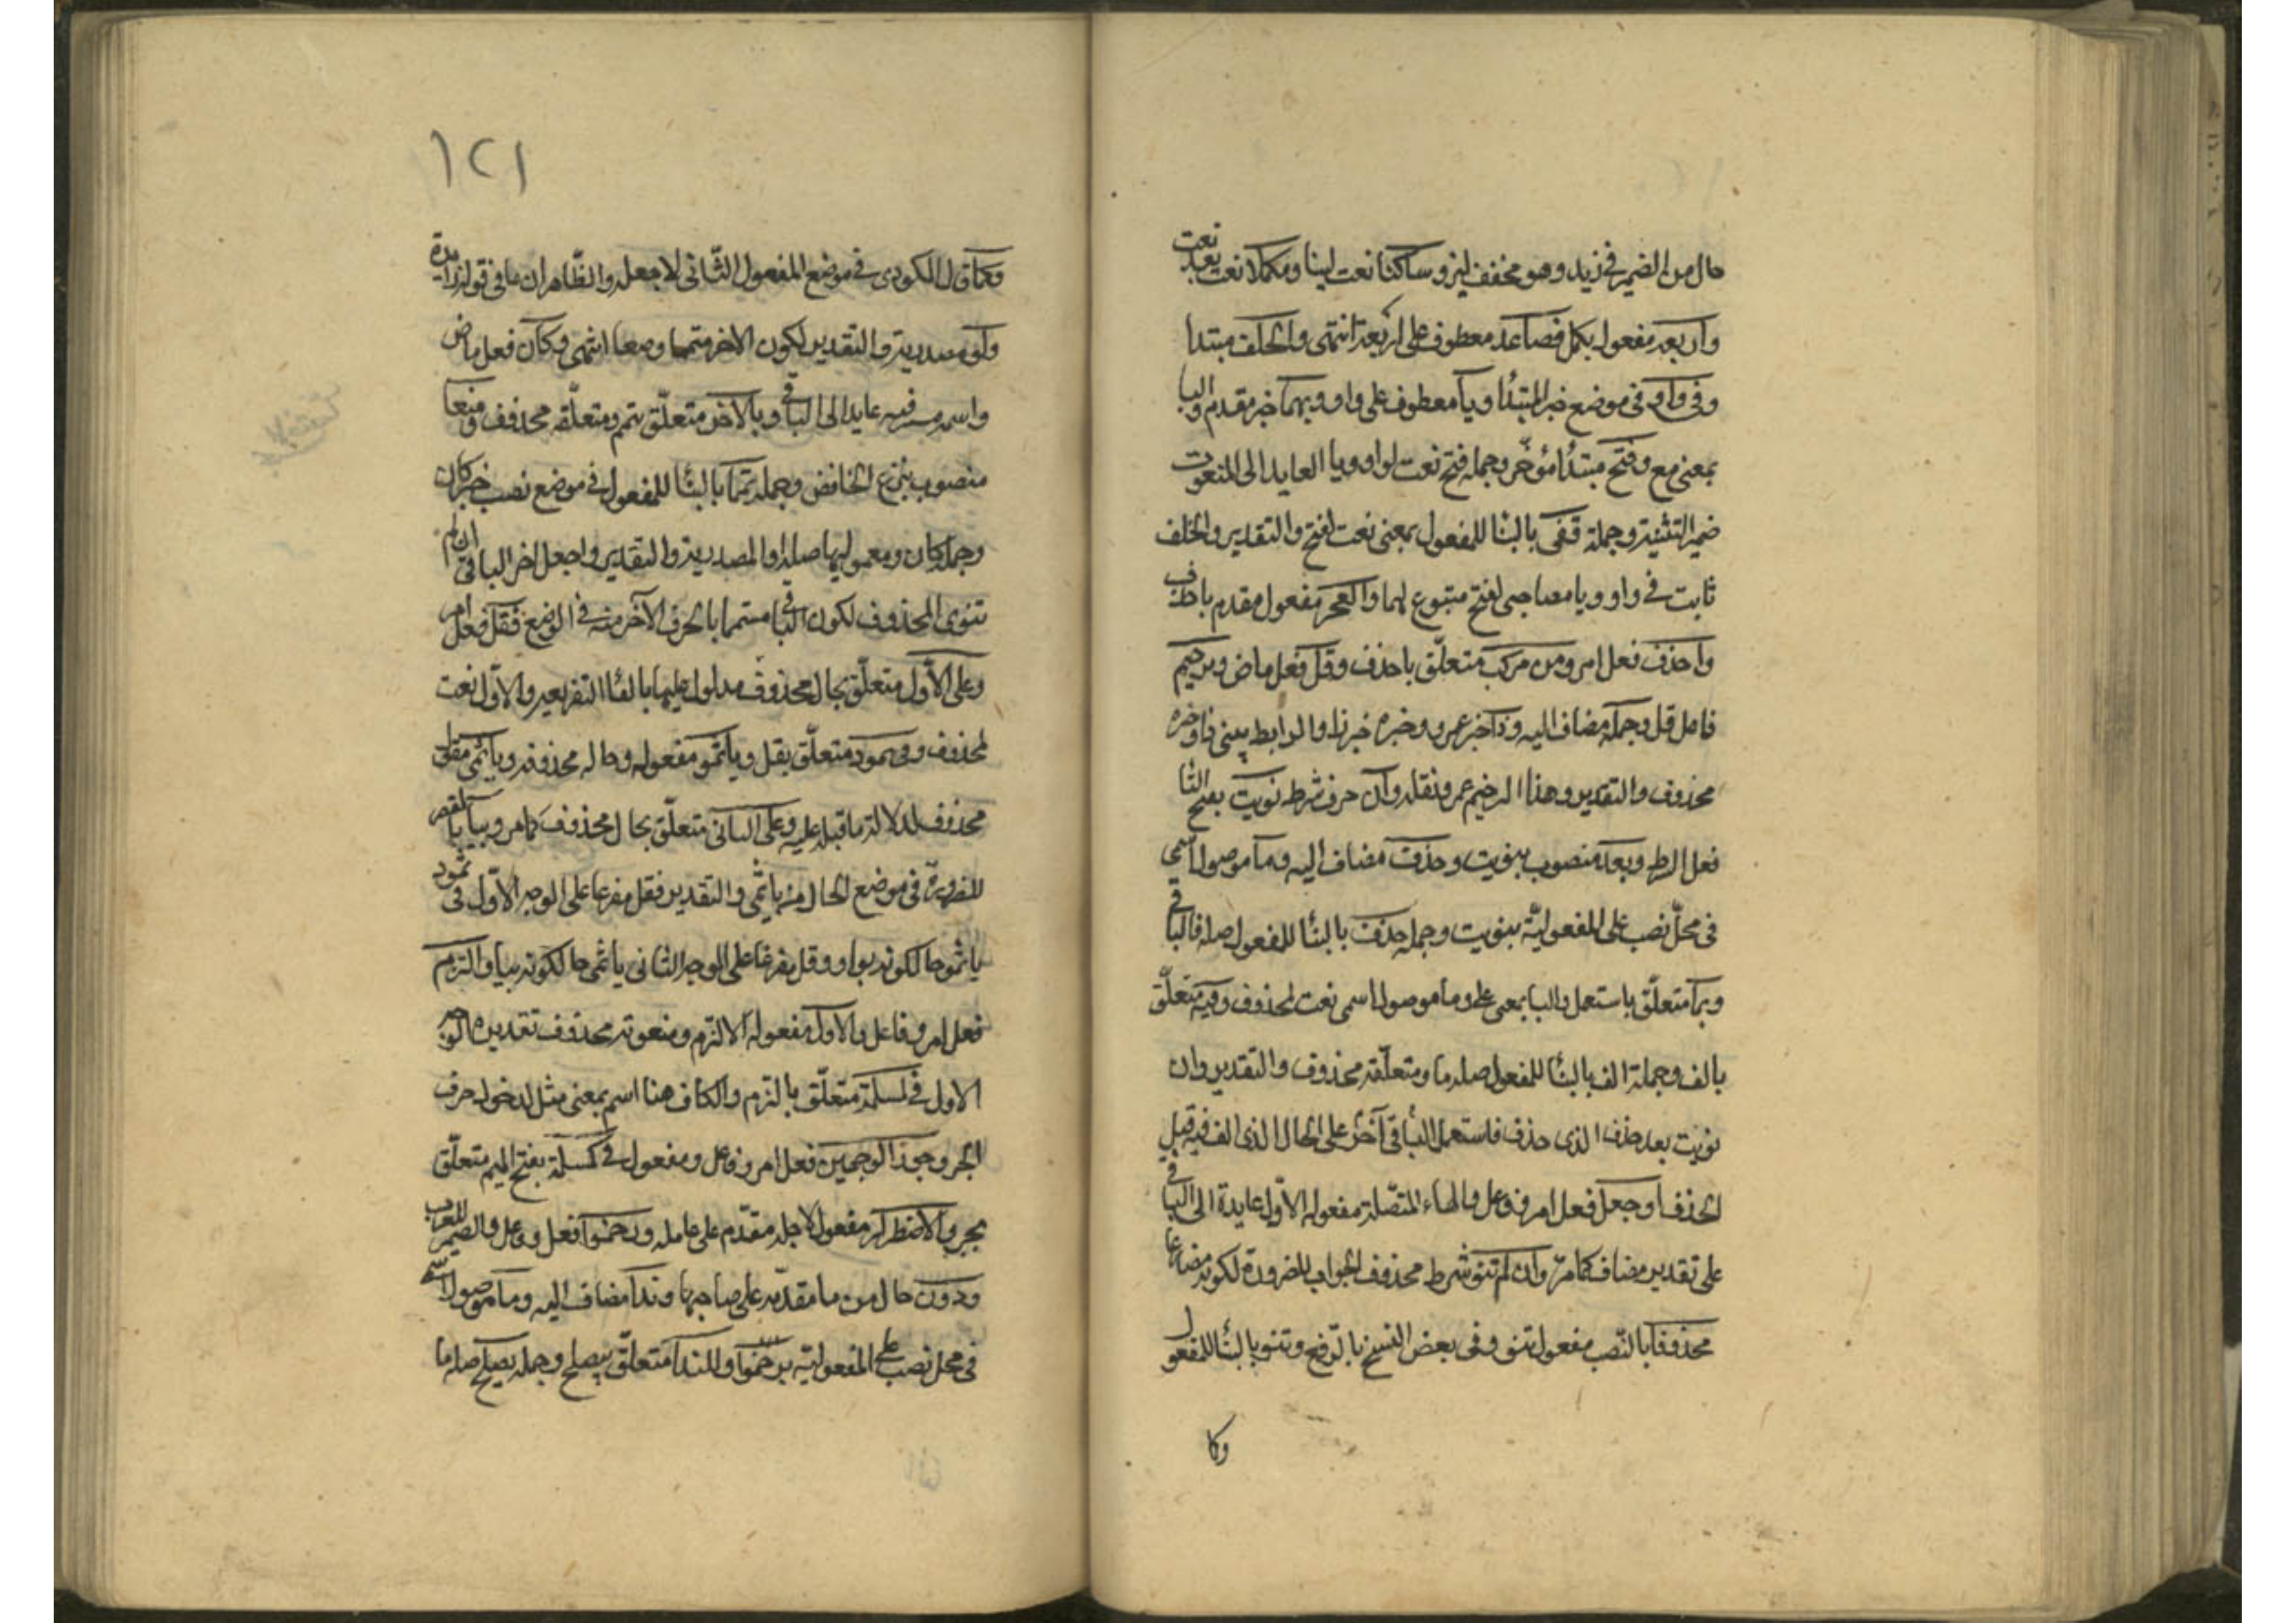 حال من الضمير في زيد وهو مخفف لين وساكنا نعت لينا ومكملا نعت بعد نعت
واربعة مفعول بكمل فصاعدا معطوف على اربعة انتهى والخلف مبتدا
وفي واو في موضع خبر المبتدا ويا معطوف على واو وبهما خبر مقدم والبا
بمعنى مع وفتح مبتدا مؤخر وجملة فتح نعت لواو ويا العايد الى المنعوت
ضمير التثنية وجملة قفى بالبنا للمفعول بمعنى نعت لفتح والتقدير والخلف
ثابت في واو ويا مصاحبى لفتح متبوع لهما والعجز مفعول مقدم باحذف
واحذف فعل امر ومن مركب متعلق باحذف وقل فعل ماض وترخيم
فاعل قل وجملة مضاف اليه وذا خبر عمرو وخبره خبر ذا والرابط بين ذا وخبره
محذوف والتقدير وهذا الترخيم عمرو نقله وان حرف شرط نويت بفتح التا
فعل الشرط وبعد منصوب بنويت وحذف مضاف اليه وما موصول اسمى
في محل نصب على المفعولية بنويت وجملة حذف بالبنا للمفعول صلة فالباقي
وبما متعلق باستعمل والبا بمعنى على وما موصول اسمى نعت لمحذوف وفيه متعلق
بالف وجملة الف بالبنا للمفعول صلة ما ومتعلقه محذوف والتقدير وان
نويت بعد حذف الذي حذف فاستعمل الباقي آخر على الحال الذي الف فيه قبل
الحذف واجعل فعل امر وفاعل والهاء المتصلة مفعوله الاول عايدة الى الباقي
على تقدير مضاف كما مر وان لم تنو شرط محذوف الجواب للضرورة لكونه مضارعا
محذوفا بالنصب مفعول تنو وفي بعض النسخ بالرفع وتنو بالبنا للمفعول
وكا
١٢١
وكما قال المكودى في موضع المفعول الثاني لاجعله والظاهر ان ما في قوله زايدة
ولو مصدرية والتقدير لكون الاخر متمما وضعا انتهى وكان فعل ماض
واسمه مستتر فيه عايد الى الباقي وبالاخر متعلق بتمم ومتعلقه محذوف ووضعا
منصوب بنزع الخافض وجملة تمما بالبنا للمفعول في موضع نصب خبر كان
وجملة كان ومعموليها صلة لو المصدرية والتقدير واجعل اخر الباقي ان لم
تنوى المحذوف لكون الباقي متمما بالحرف الآخر منه في الوضع فقل فعل امر
وعلى الاول متعلق بحال محذوف مدلول عليها بالفا التفريعية والاول نعت
لمحذوف وفي ثمود متعلق بقل ويا ثمو مفعوله وحاله محذوفة ويا ثمى مقول
محذوف لدلالة ما قبله عليه وعلى الثاني متعلق بحال محذوف كما مر وبيا بالقصر
للضرورة في موضع الحال من يا ثمى والتقدير فقل مفرعا على الوجه الاول في ثمود
يا ثمو حالكونه بواو وقل مفرعا على الوجه الثاني يا ثمى حالكونه بيا والتزم
فعل امر وفاعل والاول مفعول لالتزم ومنعوته محذوف تقديره الوجه
الاول في كمسلمة متعلق بالتزم والكاف هنا اسم بمعنى مثل لدخول حرف
الجر وجوز الوجهين فعل امر وفاعل ومفعول في كمسلمة بفتح الميم متعلق
بجوز ولاضطرار مفعول لاجله مقدم على عامله ورخموا فعل وفاعل والضمير للعرب
ودون حال من ما مقدمة على صاحبها وندا مضاف اليه وما موصول اسمي
في محل نصب على المفعولية برخموا وللندا متعلق بيصلح وجملة يصلح صلة ما